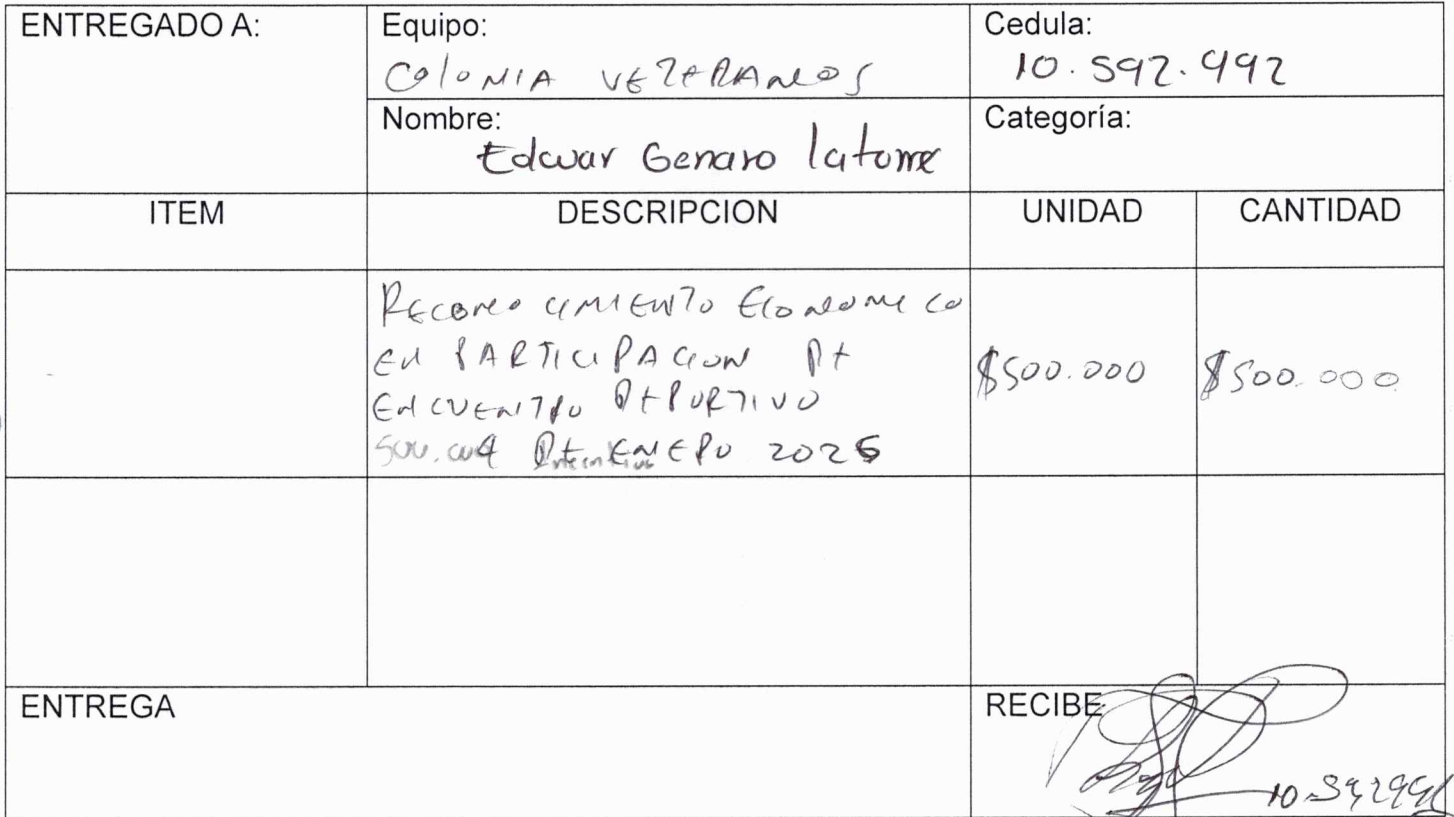 ENTREGADO A:
Equipo:
COLONIA VETERANOS
Cedula:
10.592.992
Nombre:
Edwar Genaro latorre
Categoría:
ITEM DESCRIPCION UNIDAD CANTIDAD
RECONOCIMIENTO ECONOMICO
EN PARTICIPACION DE
ENCUENTRO DEPORTIVO
4 DE ENERO 2026
$500.000 $500.000
ENTREGA
RECIBE